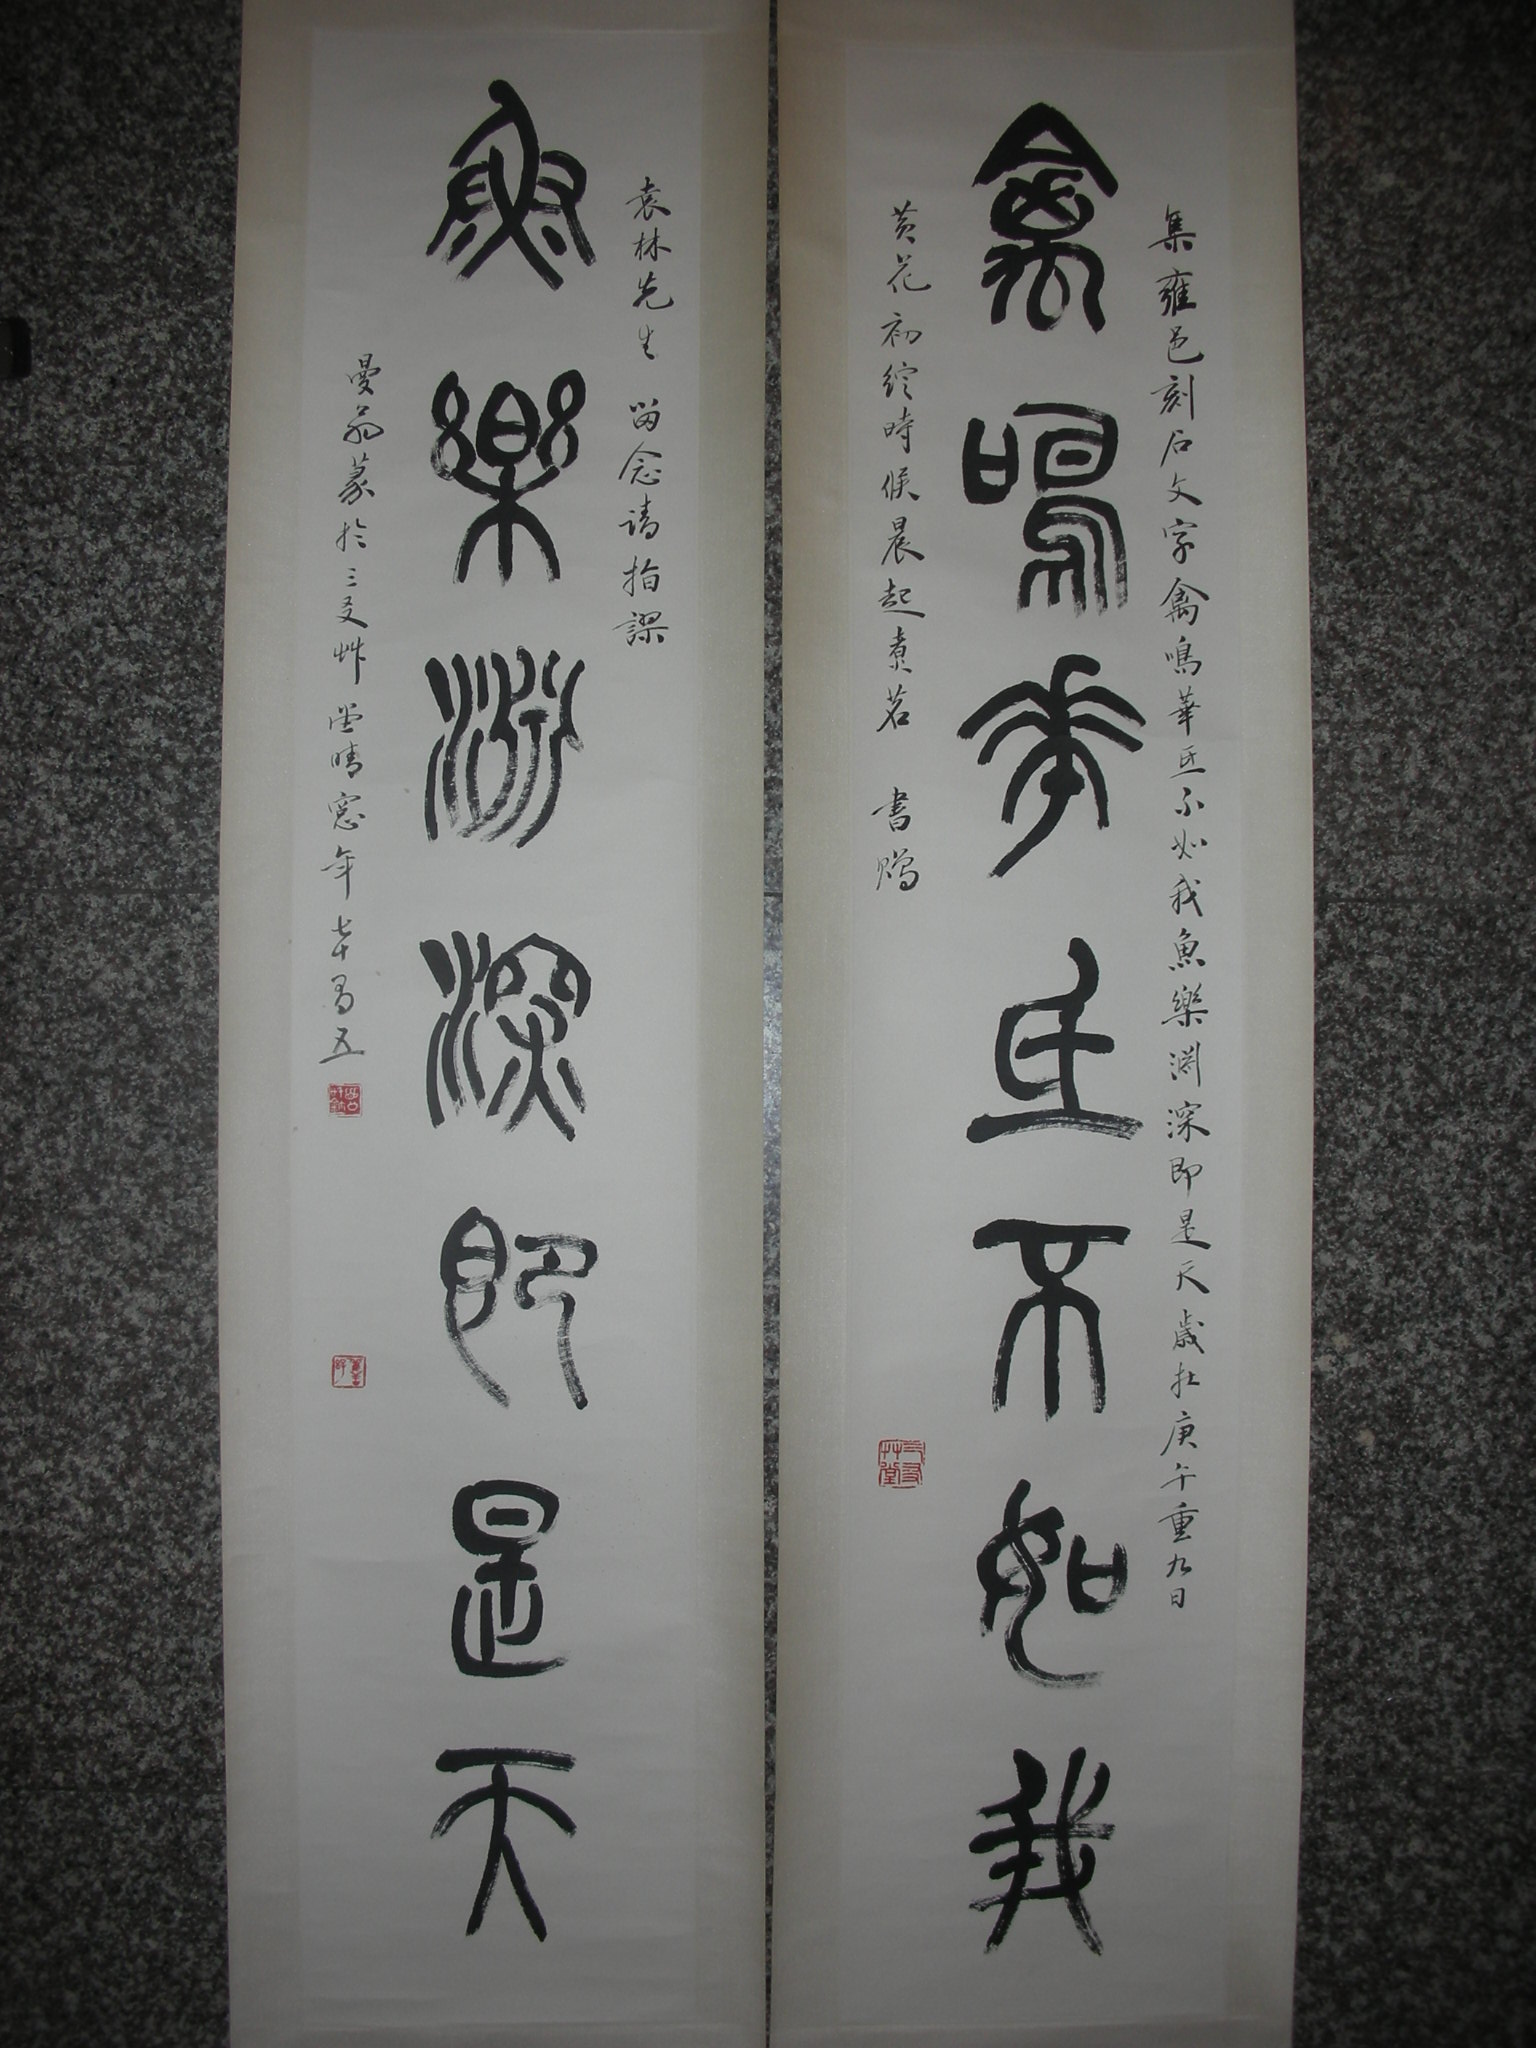 集雍邑刻石文字禽鳴華㞷不如我魚樂淵深即是天歲在庚午重九日
禽鳴華㞷不如我
黃花初綻時候晨起煮茗 書贈
三友艸堂
袁林先生 留念請指謬
魚樂淵深即是天
曼翁篆於三友艸堂晴窓年七十有五